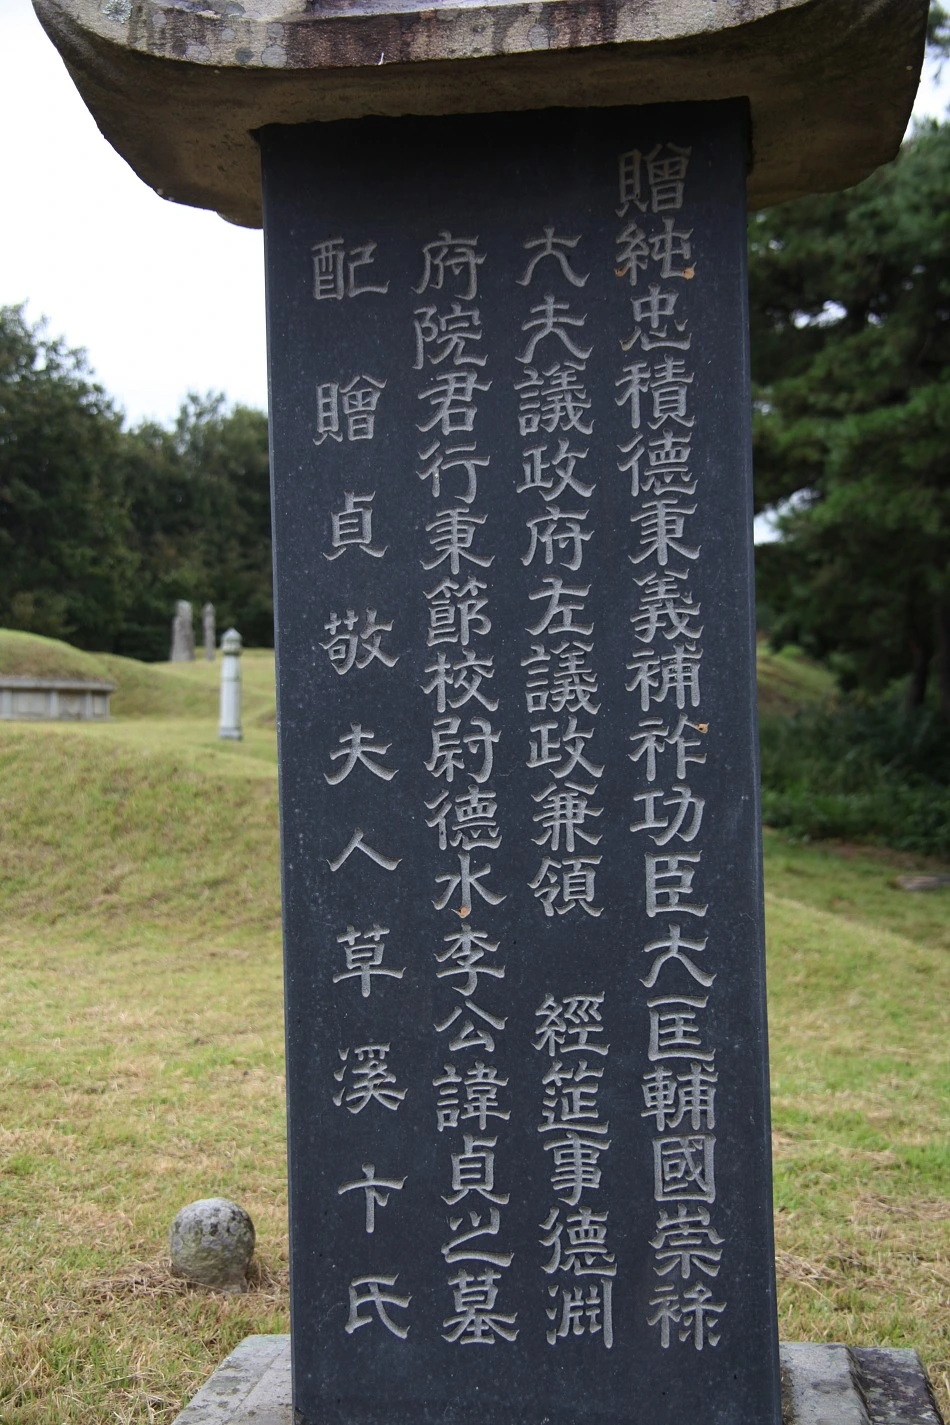 贈純忠積德秉義補祚功臣大匡輔國崇祿
大夫議政府左議政兼領 經筵事德淵
府院君行秉節校尉德水李公諱貞之墓
配贈貞敬夫人草溪卞氏